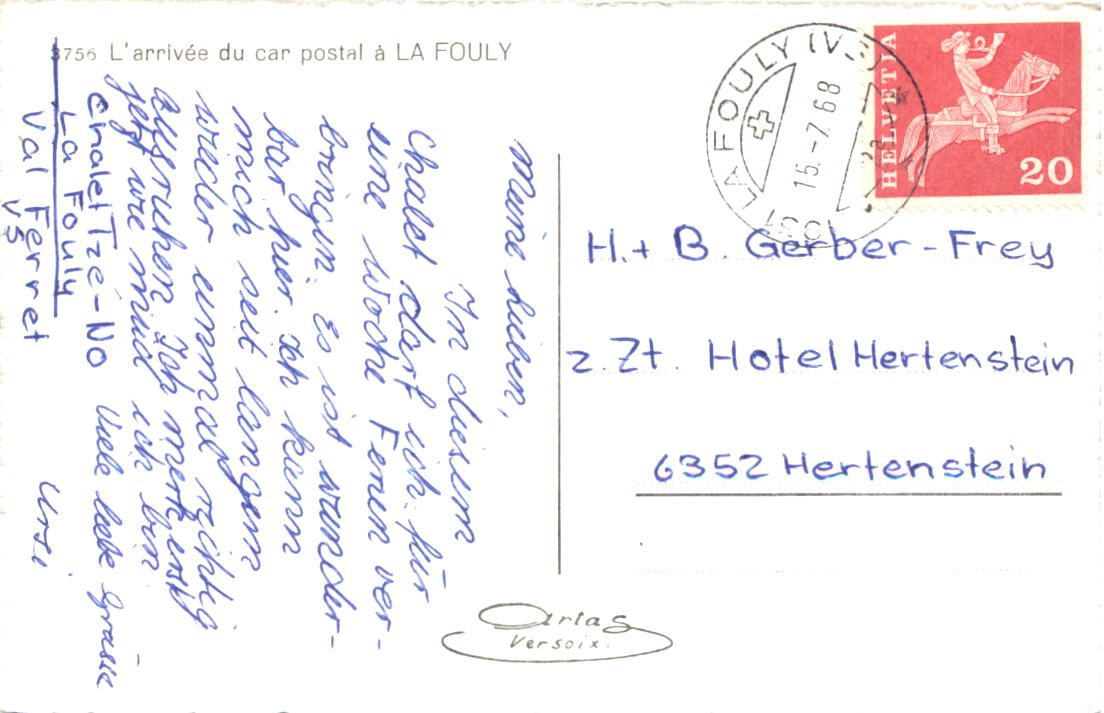 3756 L'arrivée du car postal à LA FOULY
Meine Lieben,
In diesem
Chalet darf ich für
eine Woche Ferien ver-
bringen. Es ist wunder-
bar hier. Ich kann
mich seit langem
wieder einmal richtig
ausruhen. Ich merke erst
jetzt wie müde ich bin
Viele liebe Grüsse
Ursi
Chalet Tzé-No
La Fouly
Val Ferret
VS
LA FOULY (VS)
15.-7.68
HELVETIA
20
H. + B. Gerber-Frey
z. Zt. Hotel Hertenstein
6352 Hertenstein
Artas
Versoix.